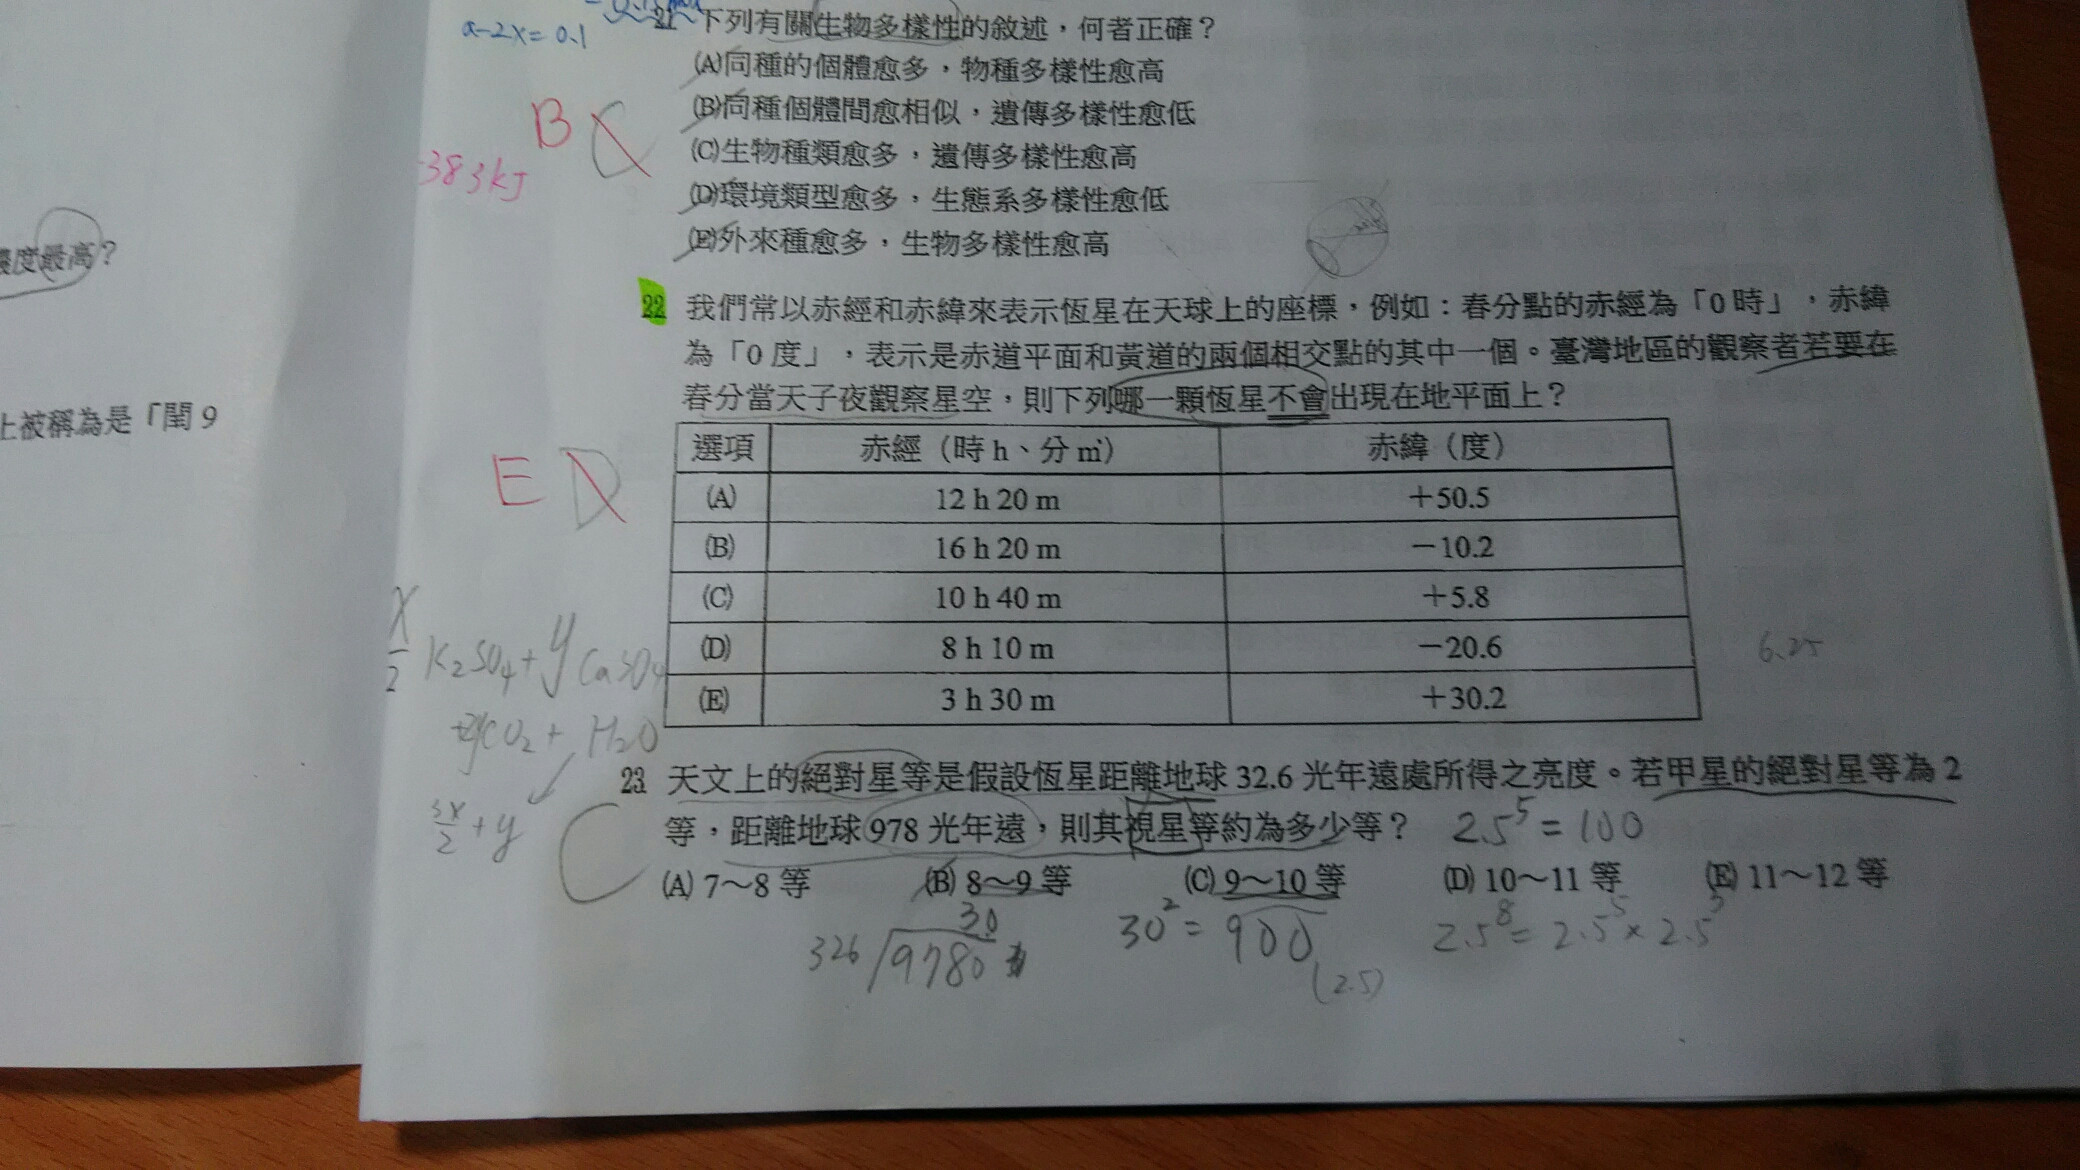 a-2x=0.1
21 下列有關生物多樣性的敘述，何者正確？
(A)同種的個體愈多，物種多樣性愈高
(B)同種個體間愈相似，遺傳多樣性愈低
B C
(C)生物種類愈多，遺傳多樣性愈高
-383kJ
(D)環境類型愈多，生態系多樣性愈低
(E)外來種愈多，生物多樣性愈高
度最高？
22 我們常以赤經和赤緯來表示恆星在天球上的座標，例如：春分點的赤經為「0時」，赤緯
為「0度」，表示是赤道平面和黃道的兩個相交點的其中一個。臺灣地區的觀察者若要在
春分當天子夜觀察星空，則下列哪一顆恆星不會出現在地平面上？
上被稱為是「閏9
選項 赤經（時h、分m） 赤緯（度）
E D
(A) 12 h 20 m +50.5
(B) 16 h 20 m －10.2
(C) 10 h 40 m +5.8
(D) 8 h 10 m －20.6
6.25
(E) 3 h 30 m +30.2
x/2 K2SO4+y CaSO4
CO2+ H2O
3x/2 +y
23 天文上的絕對星等是假設恆星距離地球32.6光年遠處所得之亮度。若甲星的絕對星等為2
等，距離地球978光年遠，則其視星等約為多少等？ 2.5^5=100
C
(A) 7～8等 (B) 8～9等 (C) 9～10等 (D) 10～11等 (E) 11～12等
30
326 9780
30^2=900
(2.5)
2.5^8=2.5^5×2.5^3